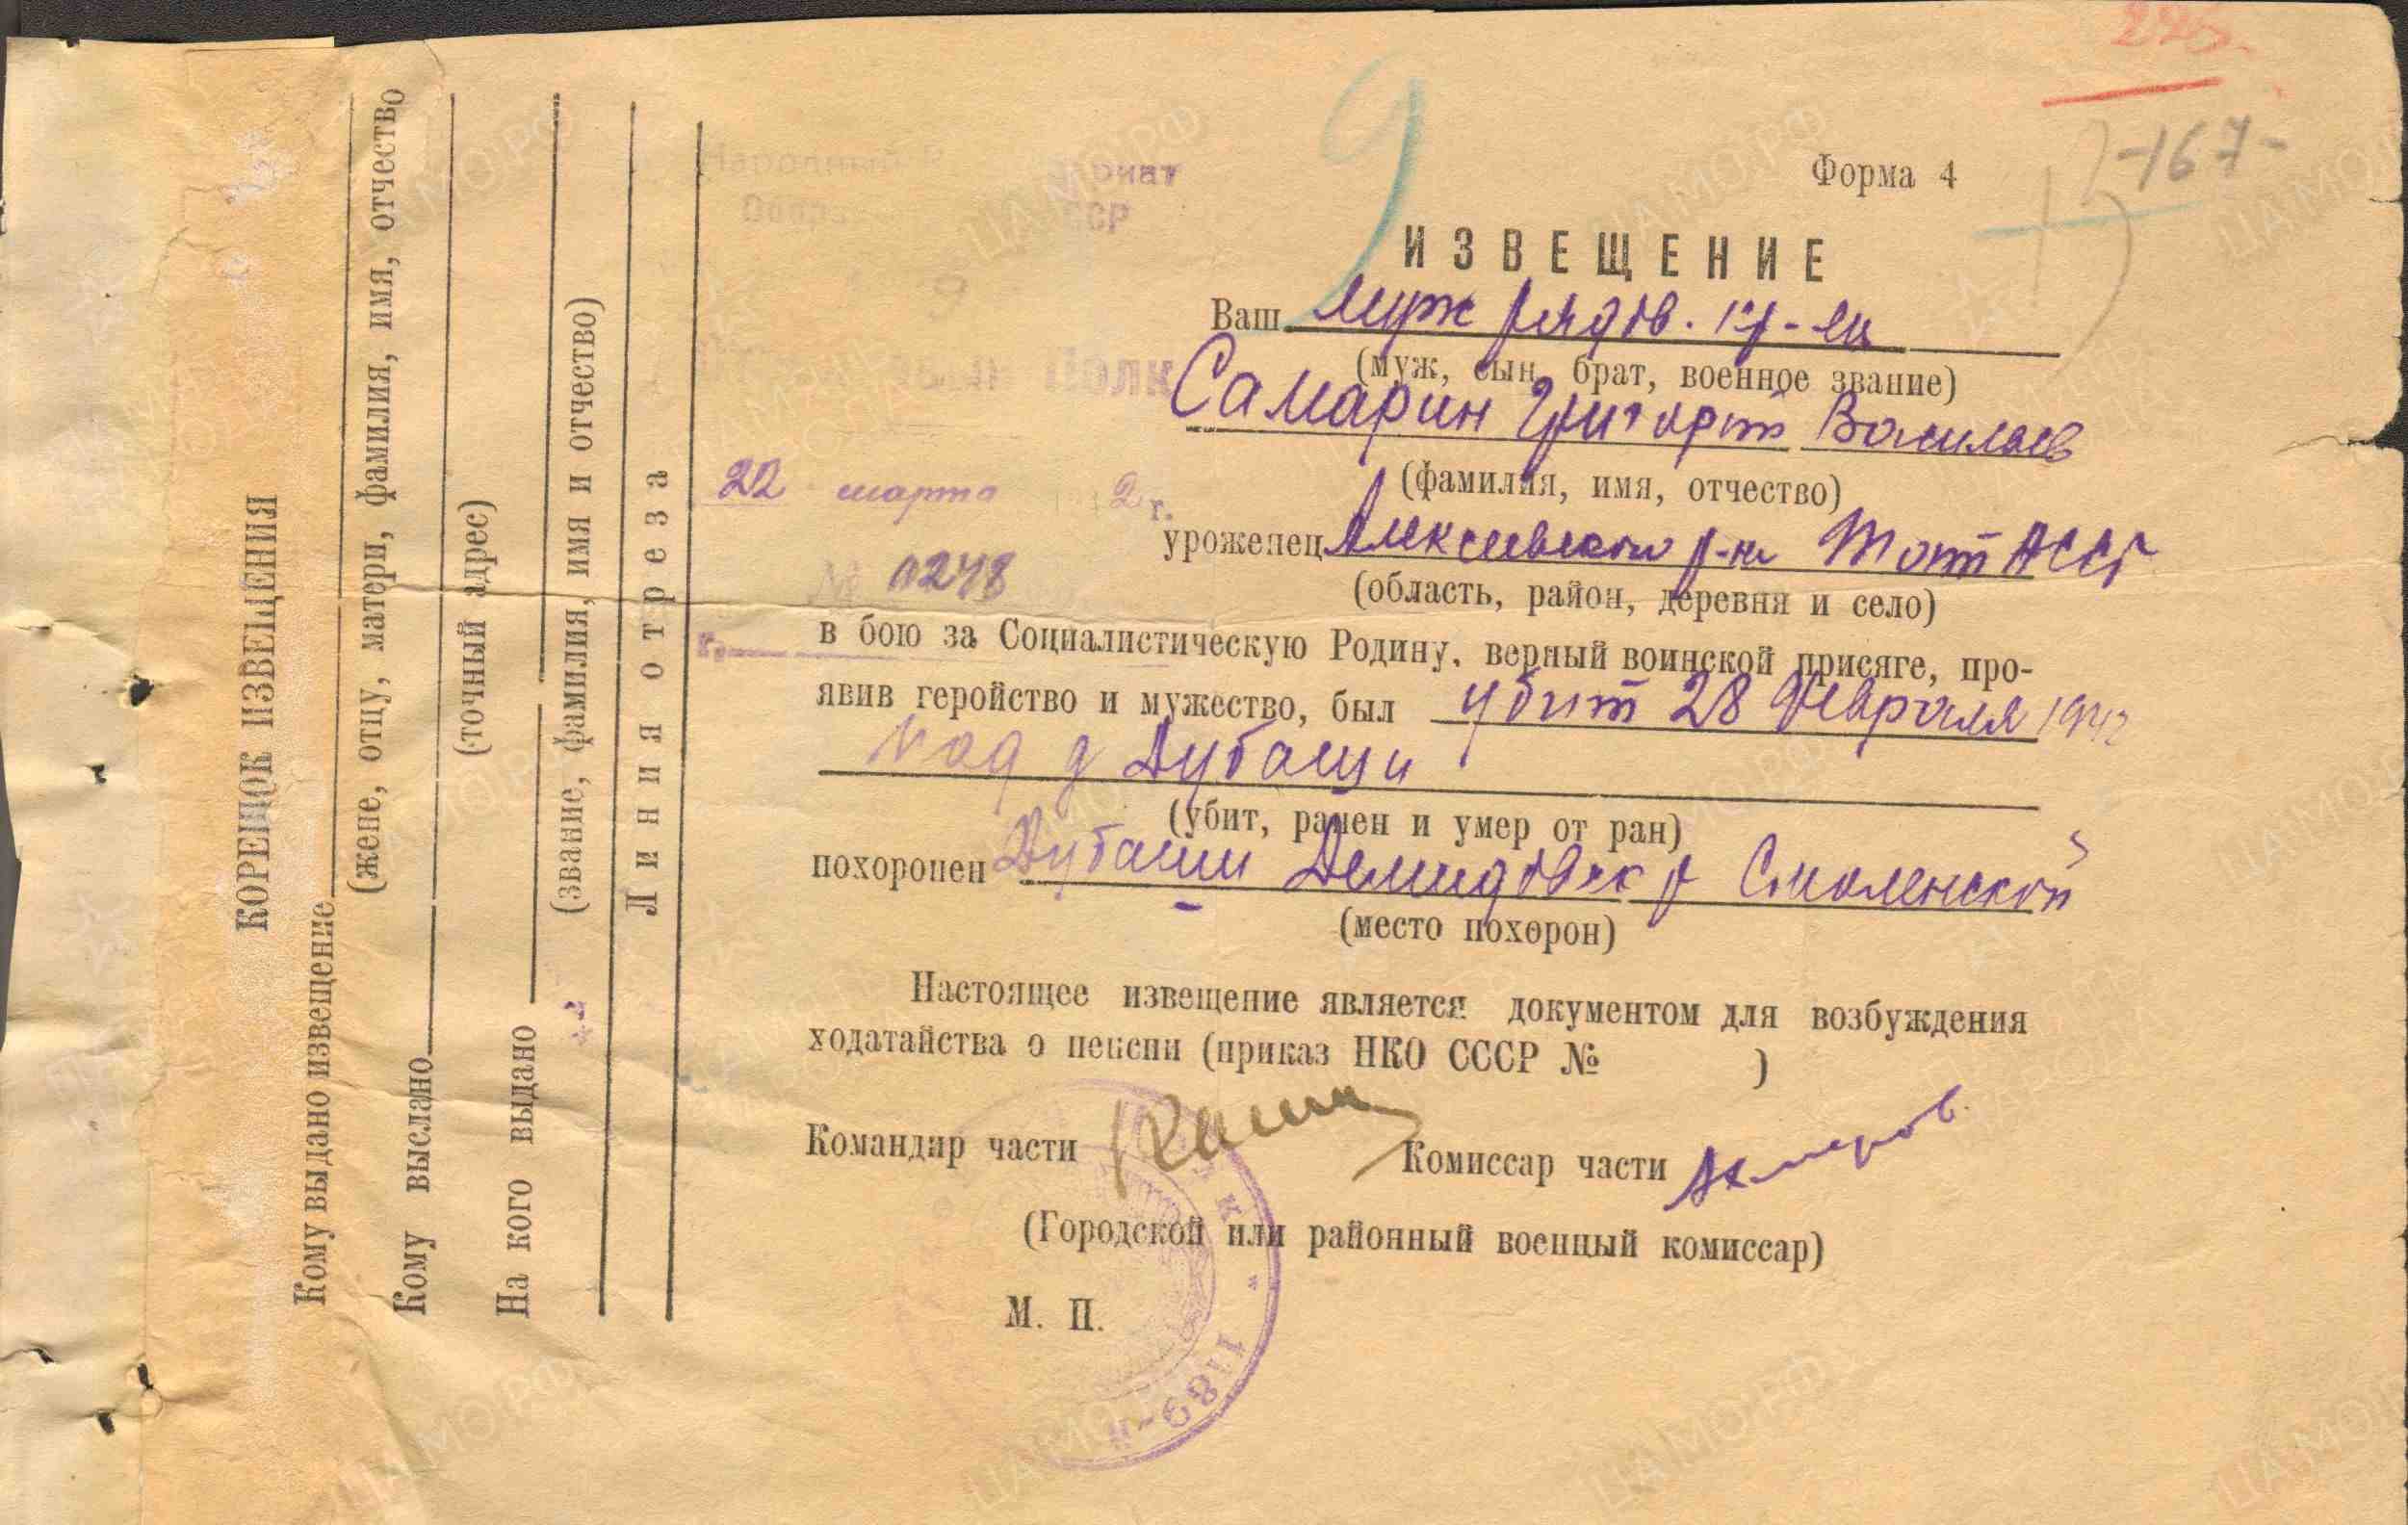 КОРЕШОК ИЗВЕЩЕНИЯ
Кому выдано извещение
(жене, отцу, матери, фамилия, имя, отчество
Кому выслано
(точный адрес)
На кого выдано
(звание, фамилия, имя и отчество)
Линия отреза
225.
-167-
Форма 4
9
Народный
ССР
Полк
22 марта 2 г.
№ 0248
ИЗВЕЩЕНИЕ
Ваш муж рядов. кр-ец
(муж, сын, брат, военное звание)
Самарин Григорий Васильев
(фамилия, имя, отчество)
уроженец Алексеевского р-на Тат АССР
(область, район, деревня и село)
в бою за Социалистическую Родину, верный воинской присяге, про-
явив геройство и мужество, был убит 28 февраля 1942
под д Дубаши
(убит, ранен и умер от ран)
похоронен Дубаши Демидовск р Смоленской
(место похорон)
Настоящее извещение является документом для возбуждения
ходатайства о пенсии (приказ НКО СССР № )
Командир части
Комиссар части
(Городской или районный военный комиссар)
М. П.
1189-й
ЦАМО.РФ